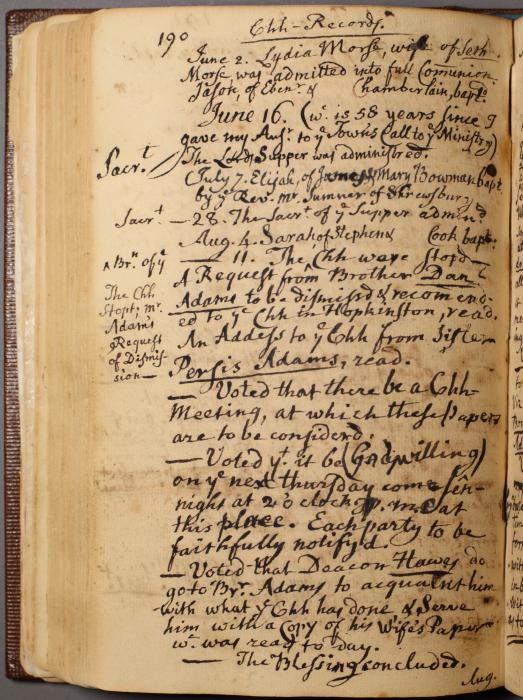 190
Chh-Records.
June 2. Lydia Morse, wife of Seth
Morse was admitted into full Comunion.
Jason, of Ebenr. & Chamberlain, bapt.
June 16. (wc. is 58 years since I
gave my Ansr. to ye Town's Call to ye Ministry)
Sacrt.
The Lord's Supper was administred.
(July 7. Elijah, of James & Mary Bowman bapt.
by ye Revd. mr. Sumner of Shrewsbury)
Sacrt — 28. The Sacrt. of ye Supper admind.
Aug. 4. Sarah of Stephen & Cook bapt.
— 11. The Chh ware Stopd —
A Brn. of ye
The Chh
Stopt, mr.
Adams
Request
of Dismis-
sion —
A Request from Brother Danl.
Adams to be dismissd & recomend-
ed to ye Chh in Hopkinston, read.
An Addess to ye Chh from Sister
Persis Adams, read.
— Voted that there be a Chh-
Meeting, at which these Papers
are to be considerd.
— Voted yt. it be (God willing)
on ye next thursday come sen-
night at 2 o clock p. m. at
this place. Each party to be
faithfully notify'd.
— Voted that Deacon Hawes do
go to Br. Adams to acquaint him
with what ye Chh has done & Serve
him with a Copy of his Wife's Paper
wc. was read to day.
— The Blessing concluded.
Aug.